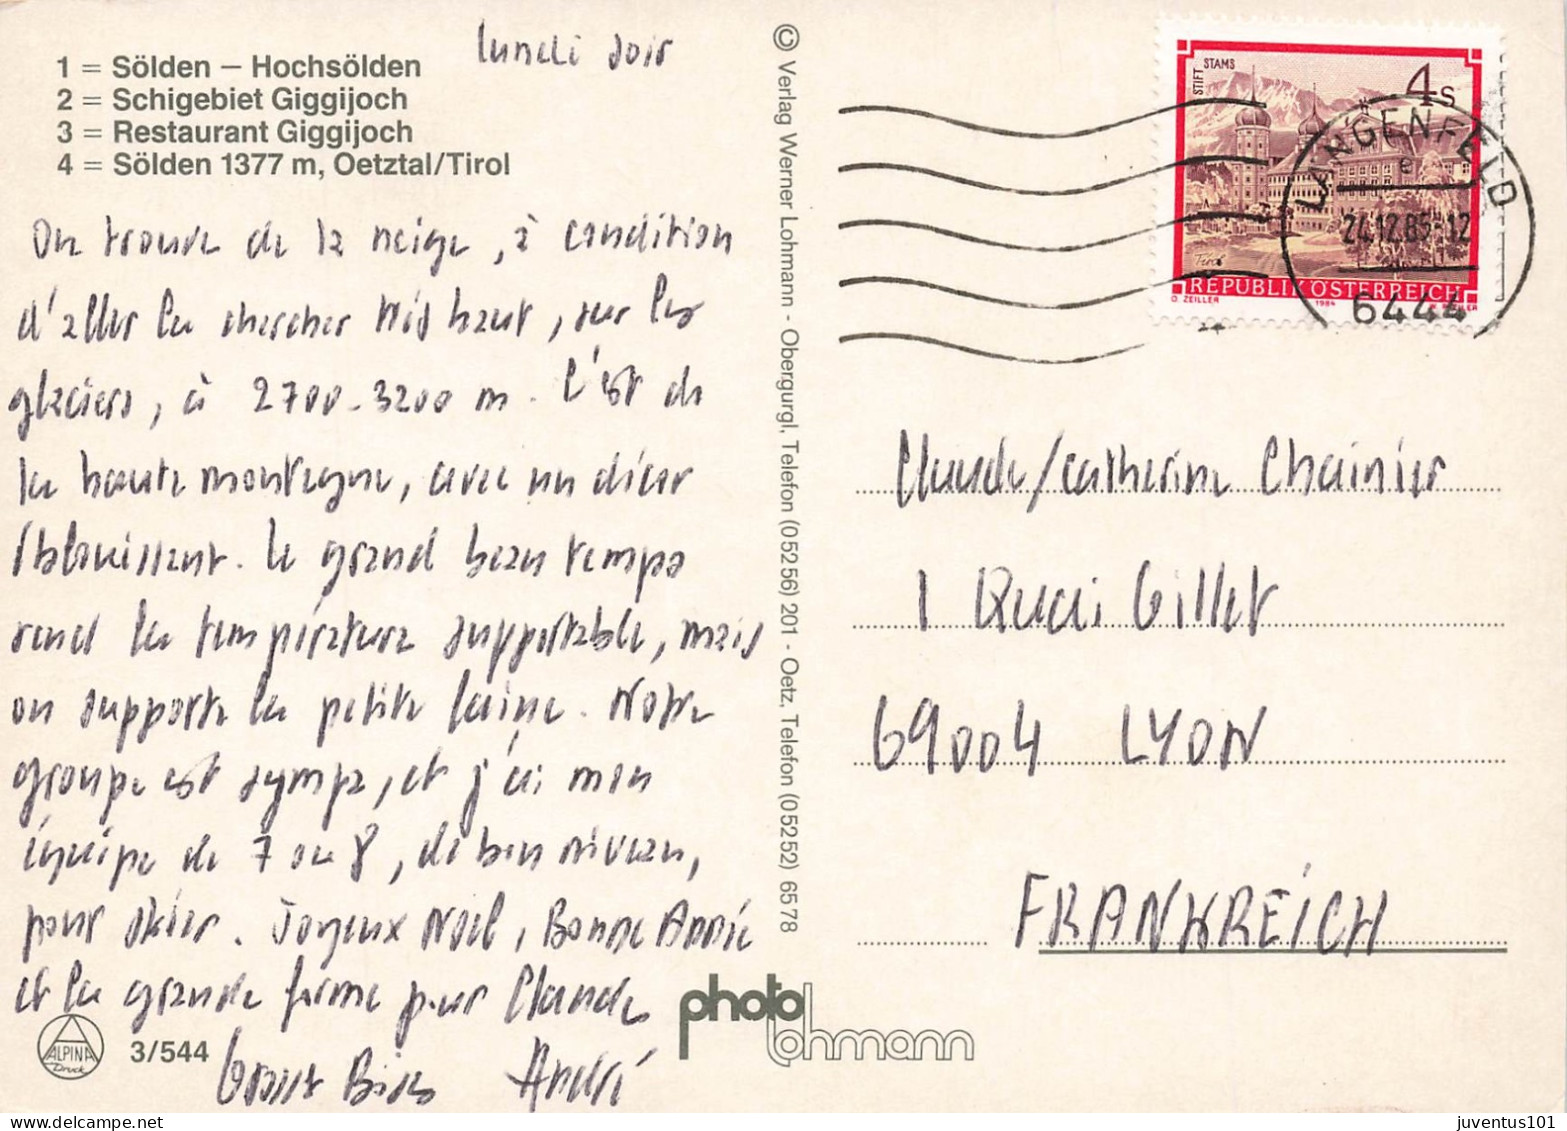 lundi soir
1 = Sölden – Hochsölden
2 = Schigebiet Giggijoch
3 = Restaurant Giggijoch
4 = Sölden 1377 m, Oetztal/Tirol
On trouve de la neige, à condition
d'aller la chercher très haut, sur les
glaciers, à 2700-3200 m. C'est de
la haute montagne, avec un décor
éblouissant. Le grand beau temps
rend la température supportable, mais
on supporte la petite laine. Notre
groupe est sympa, et j'ai mon
équipe de 7 ou 8, de bon niveau,
pour skier. Joyeux Noël, Bonne Année
et la grande forme pour Claude
Grosses Bises André
ALPINA
Druck
3/544
© Verlag Werner Lohmann - Obergurgl, Telefon (05256) 201 - Oetz, Telefon (05252) 6578
photo
lohmann
STIFT STAMS
4s
Tirol
REPUBLIK ÖSTERREICH
O. ZEILLER
1984
LÄNGENFELD
e
24.12.85-12
6444
Claude/Catherine Chainier
1 Quai Gillet
69004 LYON
FRANKREICH
juventus101